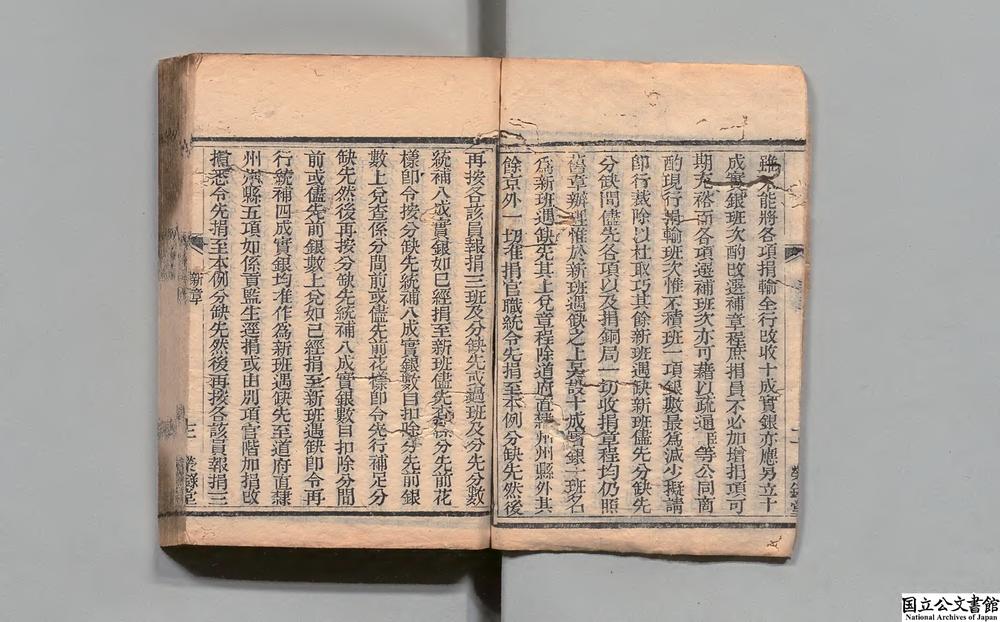 雖不能將各項捐輸全行改收十成實銀亦應另立十
成實銀班次酌改選補章程庶捐員不必加增捐項可
期充裕而各項選補班次亦可藉以疏通 等公同商
酌現行報輸班次惟不積班一項銀數最為減少擬請
即行裁除以杜取巧其餘新班遇缺新班儘先分缺先
分缺間儘先各項以及捐銅局一切收捐章程均仍照
舊章辦理惟於新班遇缺之上另 十成實銀一班名
為新班遇缺先其上兌章程除道府直隸州知州縣外其
餘京外一切准捐官職統令先捐至本例分缺先然後
再按各該員報捐三班及分缺先或過班及分先分數
統補八成實銀如已經捐至新班儘先 分先前花
樣即令按分缺先統補八成實銀數目扣除分先前銀
數上兌查係分間前或儘先前花樣即令先行補足分
缺先然後再按分缺先統補八成實銀數目扣除分間
前或儘先前銀數上兌如已經捐至新班遇缺即令再
行統補四成實銀均准作為新班遇缺先至道府直隸
州 縣五項如係貢監生逕捐或由別項官階加捐改
捐悉令先捐至本例分缺先然後再按各該員報捐三
新章
榮錄堂
国立公文書館
National Archives of Japan